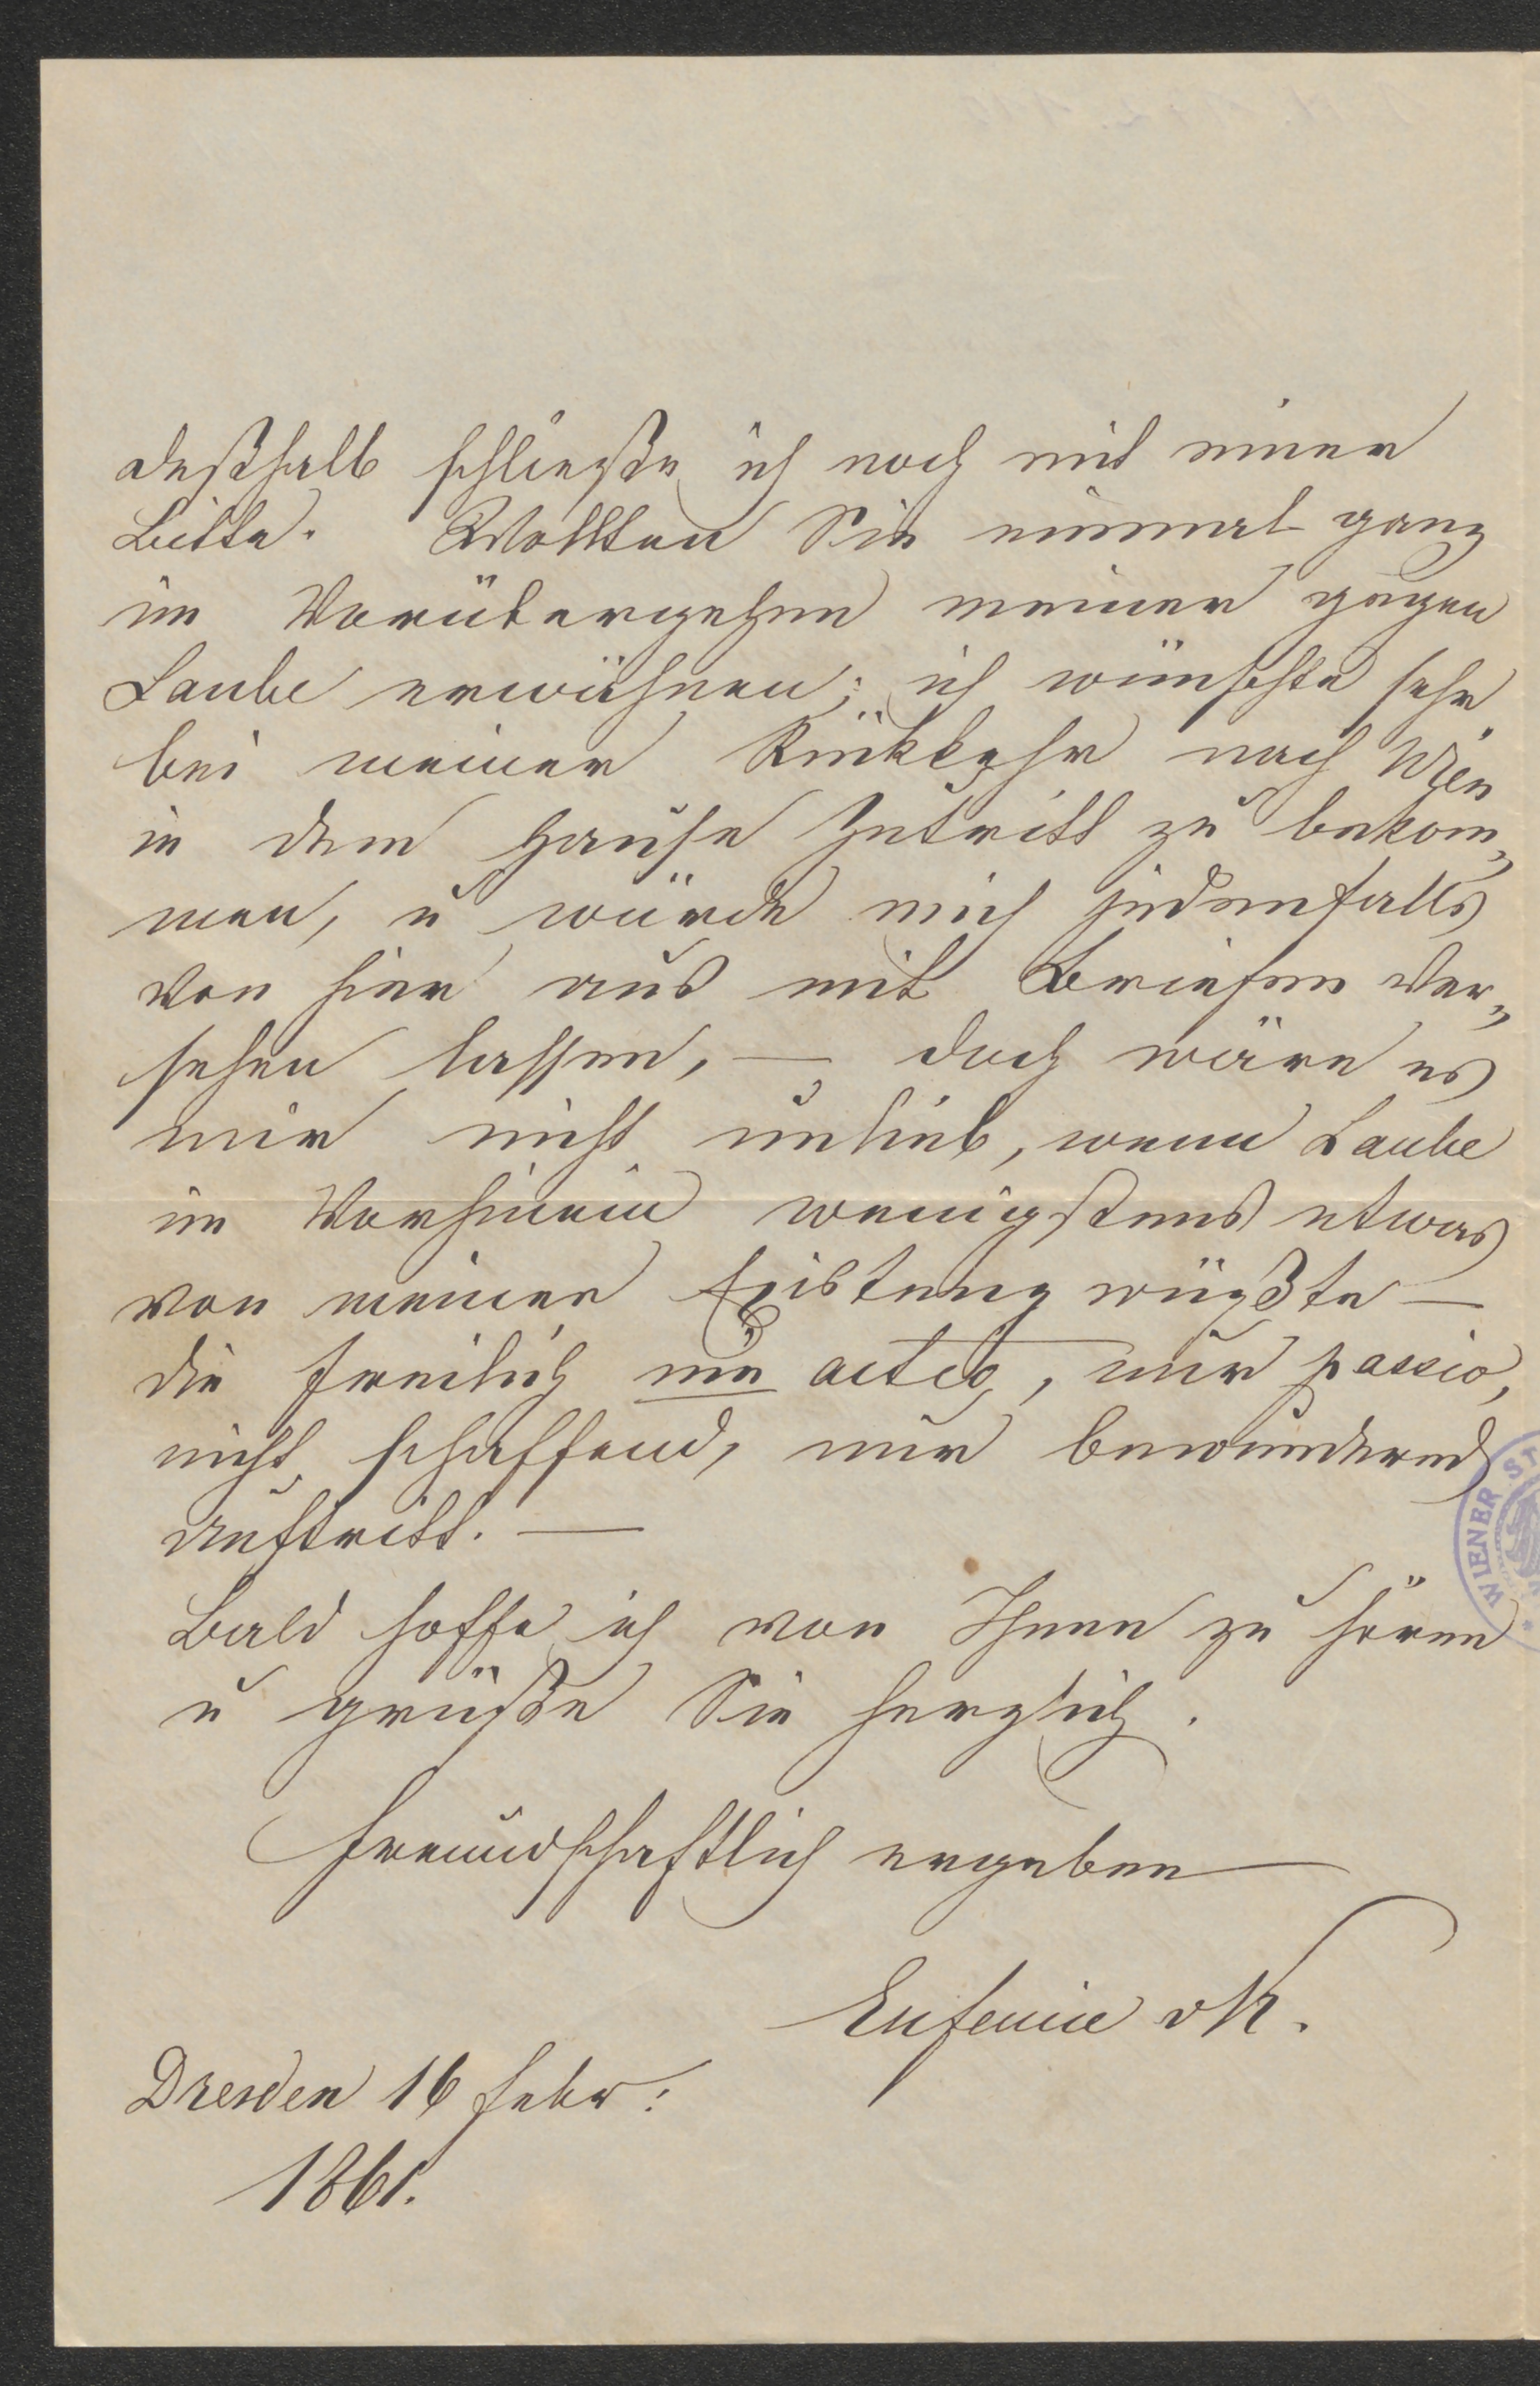 deßhalb schließe ich noch mit einer
Bitte. Wollten Sie einmal ganz
im Vorübergehen meiner gegen
Laube erwähnen; ich wünschte sehr
bei meiner Rückkehr nach Wien
in dem Hause Zutritt zu bekom„
men, u würde mich jedenfalls
von hier aus mit Briefen ver„
sehen lassen, — doch wäre es
mir nicht unlieb, wenn Laube
im Vorhinein wenigstens etwas
von meiner Existenz wüßte —
die freilich nie actio, nur passio,
nicht schaffend, nur bewundernd
auftritt. —
Bald hoffe ich von Ihnen zu hören
u grüße Sie herzlich.
freundschaftlich ergeben
Eufemia vK.
Dresden 16 Febr:
1861.
WIENER ST